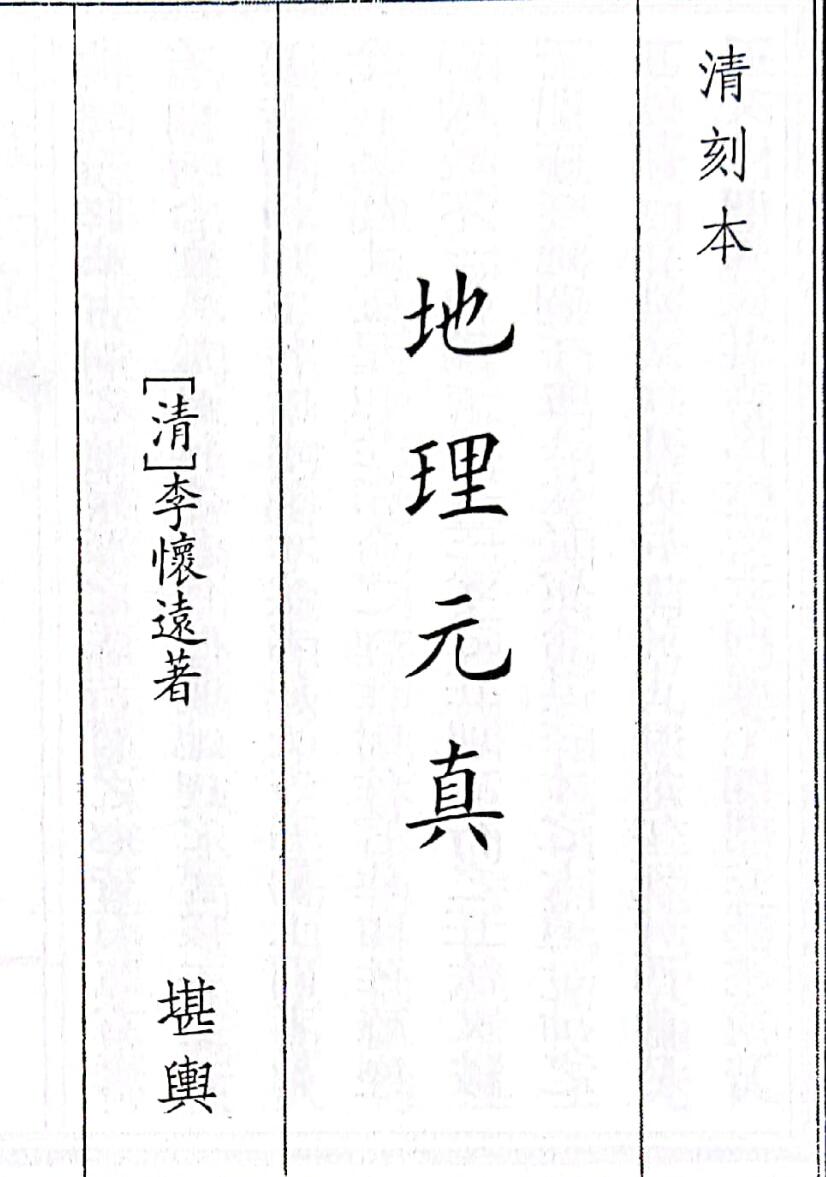 清刻本
地理元真
［清］李懷遠著
堪輿